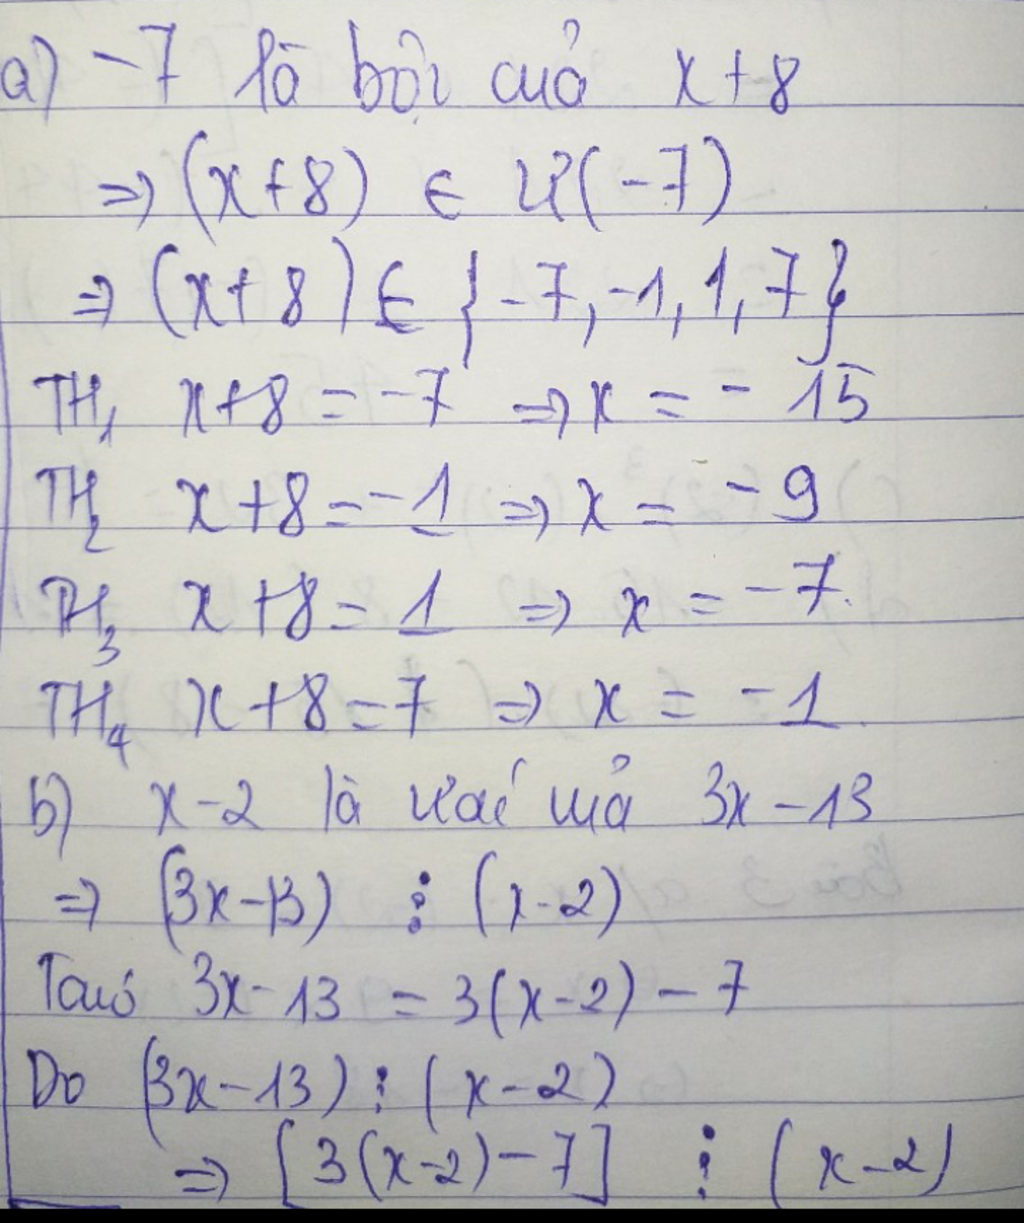 a) -7 là bội của x+8
⇒ (x+8) ∈ Ư(-7)
⇒ (x+8) ∈ {-7,-1,1,7}
TH1 x+8=-7 ⇒ x = -15
TH2 x+8=-1 ⇒ x = -9
TH3 x+8=1 ⇒ x = -7.
TH4 x+8=7 ⇒ x = -1.
b) x-2 là ước của 3x-13
⇒ (3x-13) ⋮ (x-2)
Ta có 3x-13 = 3(x-2)-7
Do (3x-13) ⋮ (x-2)
⇒ [3(x-2)-7] ⋮ (x-2)